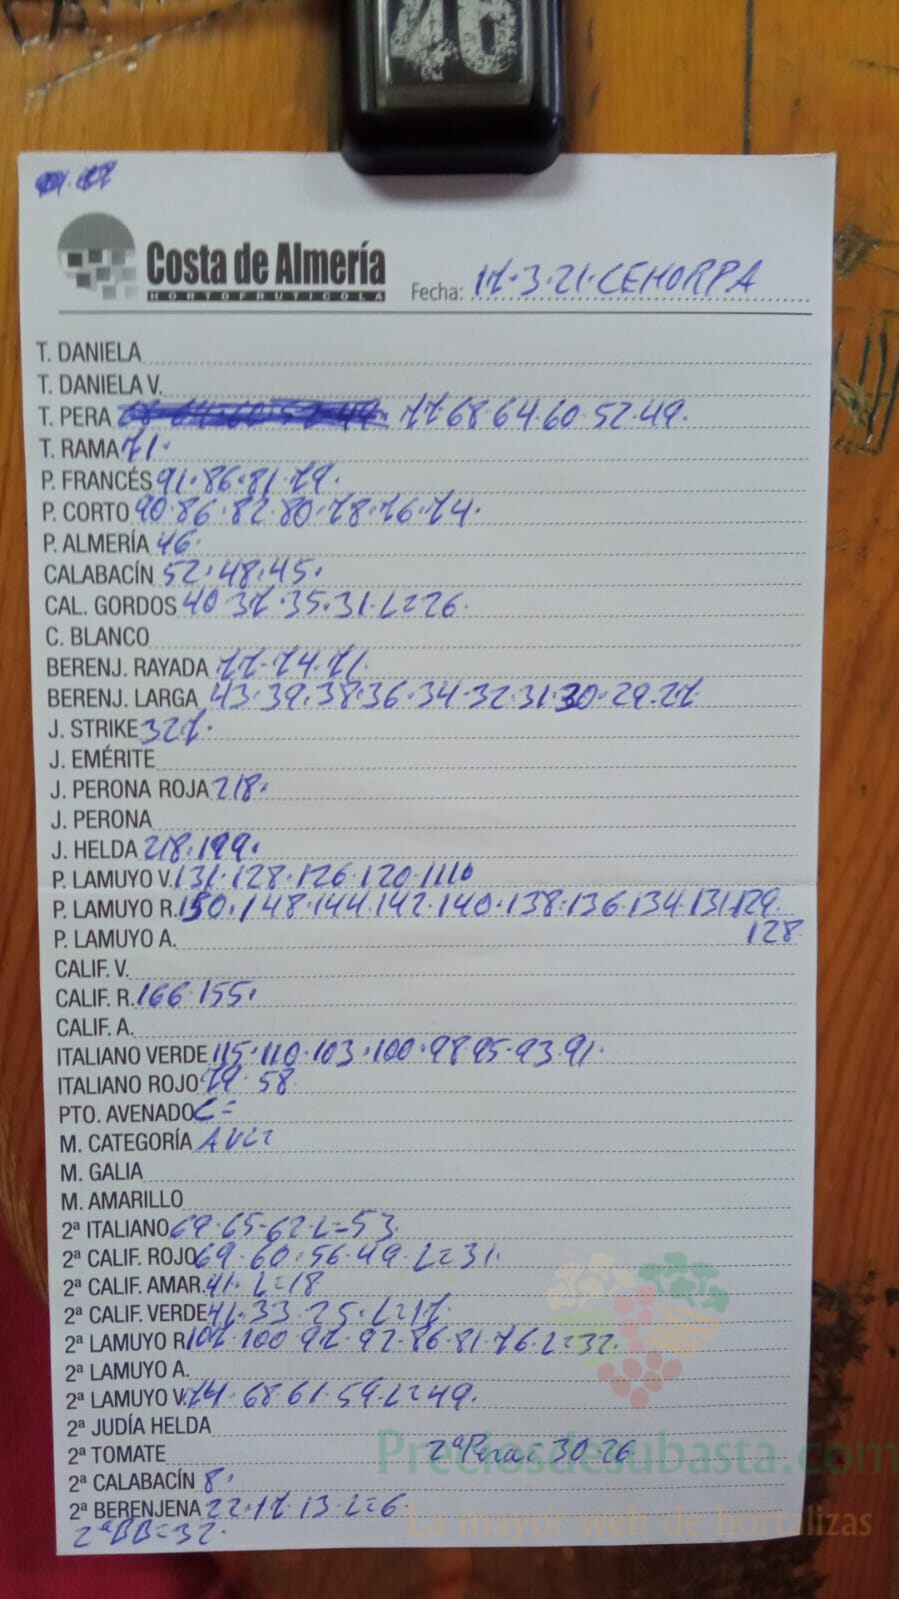 46
Costa de Almería
HORTOFRUTICOLA
Fecha: 17·3·21·CEHORPA
T. DANIELA
T. DANIELA V.
T. PERA 77 68·64·60·52·49·
T. RAMA 71·
P. FRANCÉS 91·86·81·79·
P. CORTO 90·86·82·80·78·76·74·
P. ALMERÍA 46·
CALABACÍN 52·48·45·
CAL. GORDOS 40·37·35·31·L=26·
C. BLANCO
BERENJ. RAYADA 77·74·71·
BERENJ. LARGA 43·39·38·36·34·32·31·30·29·27·
J. STRIKE 327·
J. EMÉRITE
J. PERONA ROJA 218·
J. PERONA
J. HELDA 218·199·
P. LAMUYO V. 131·128·126·120·111·
P. LAMUYO R. 150·148·144·142·140·138·136·134·131·129·
P. LAMUYO A. 128
CALIF. V.
CALIF. R. 166·155·
CALIF. A.
ITALIANO VERDE 115·110·103·100·98·95·93·91·
ITALIANO ROJO 79·58
PTO. AVENADO C=
M. CATEGORÍA
M. GALIA
M. AMARILLO
2ª ITALIANO 69·65·62·L=53
2ª CALIF. ROJO 69·60·56·49·L=31·
2ª CALIF. AMAR. 41·L=18
2ª CALIF. VERDE 41·33·25·L=17·
2ª LAMUYO R. 107·100·97·92·86·81·76·L=32·
2ª LAMUYO A.
2ª LAMUYO V. 74·68·61·59·L=49·
2ª JUDÍA HELDA
2ª TOMATE 2ªPera= 30·26
Preciosdesubasta.com
2ª CALABACÍN 8·
2ª BERENJENA 22·17·13·L=6
La mayor web de hortalizas
2ªBB=32·